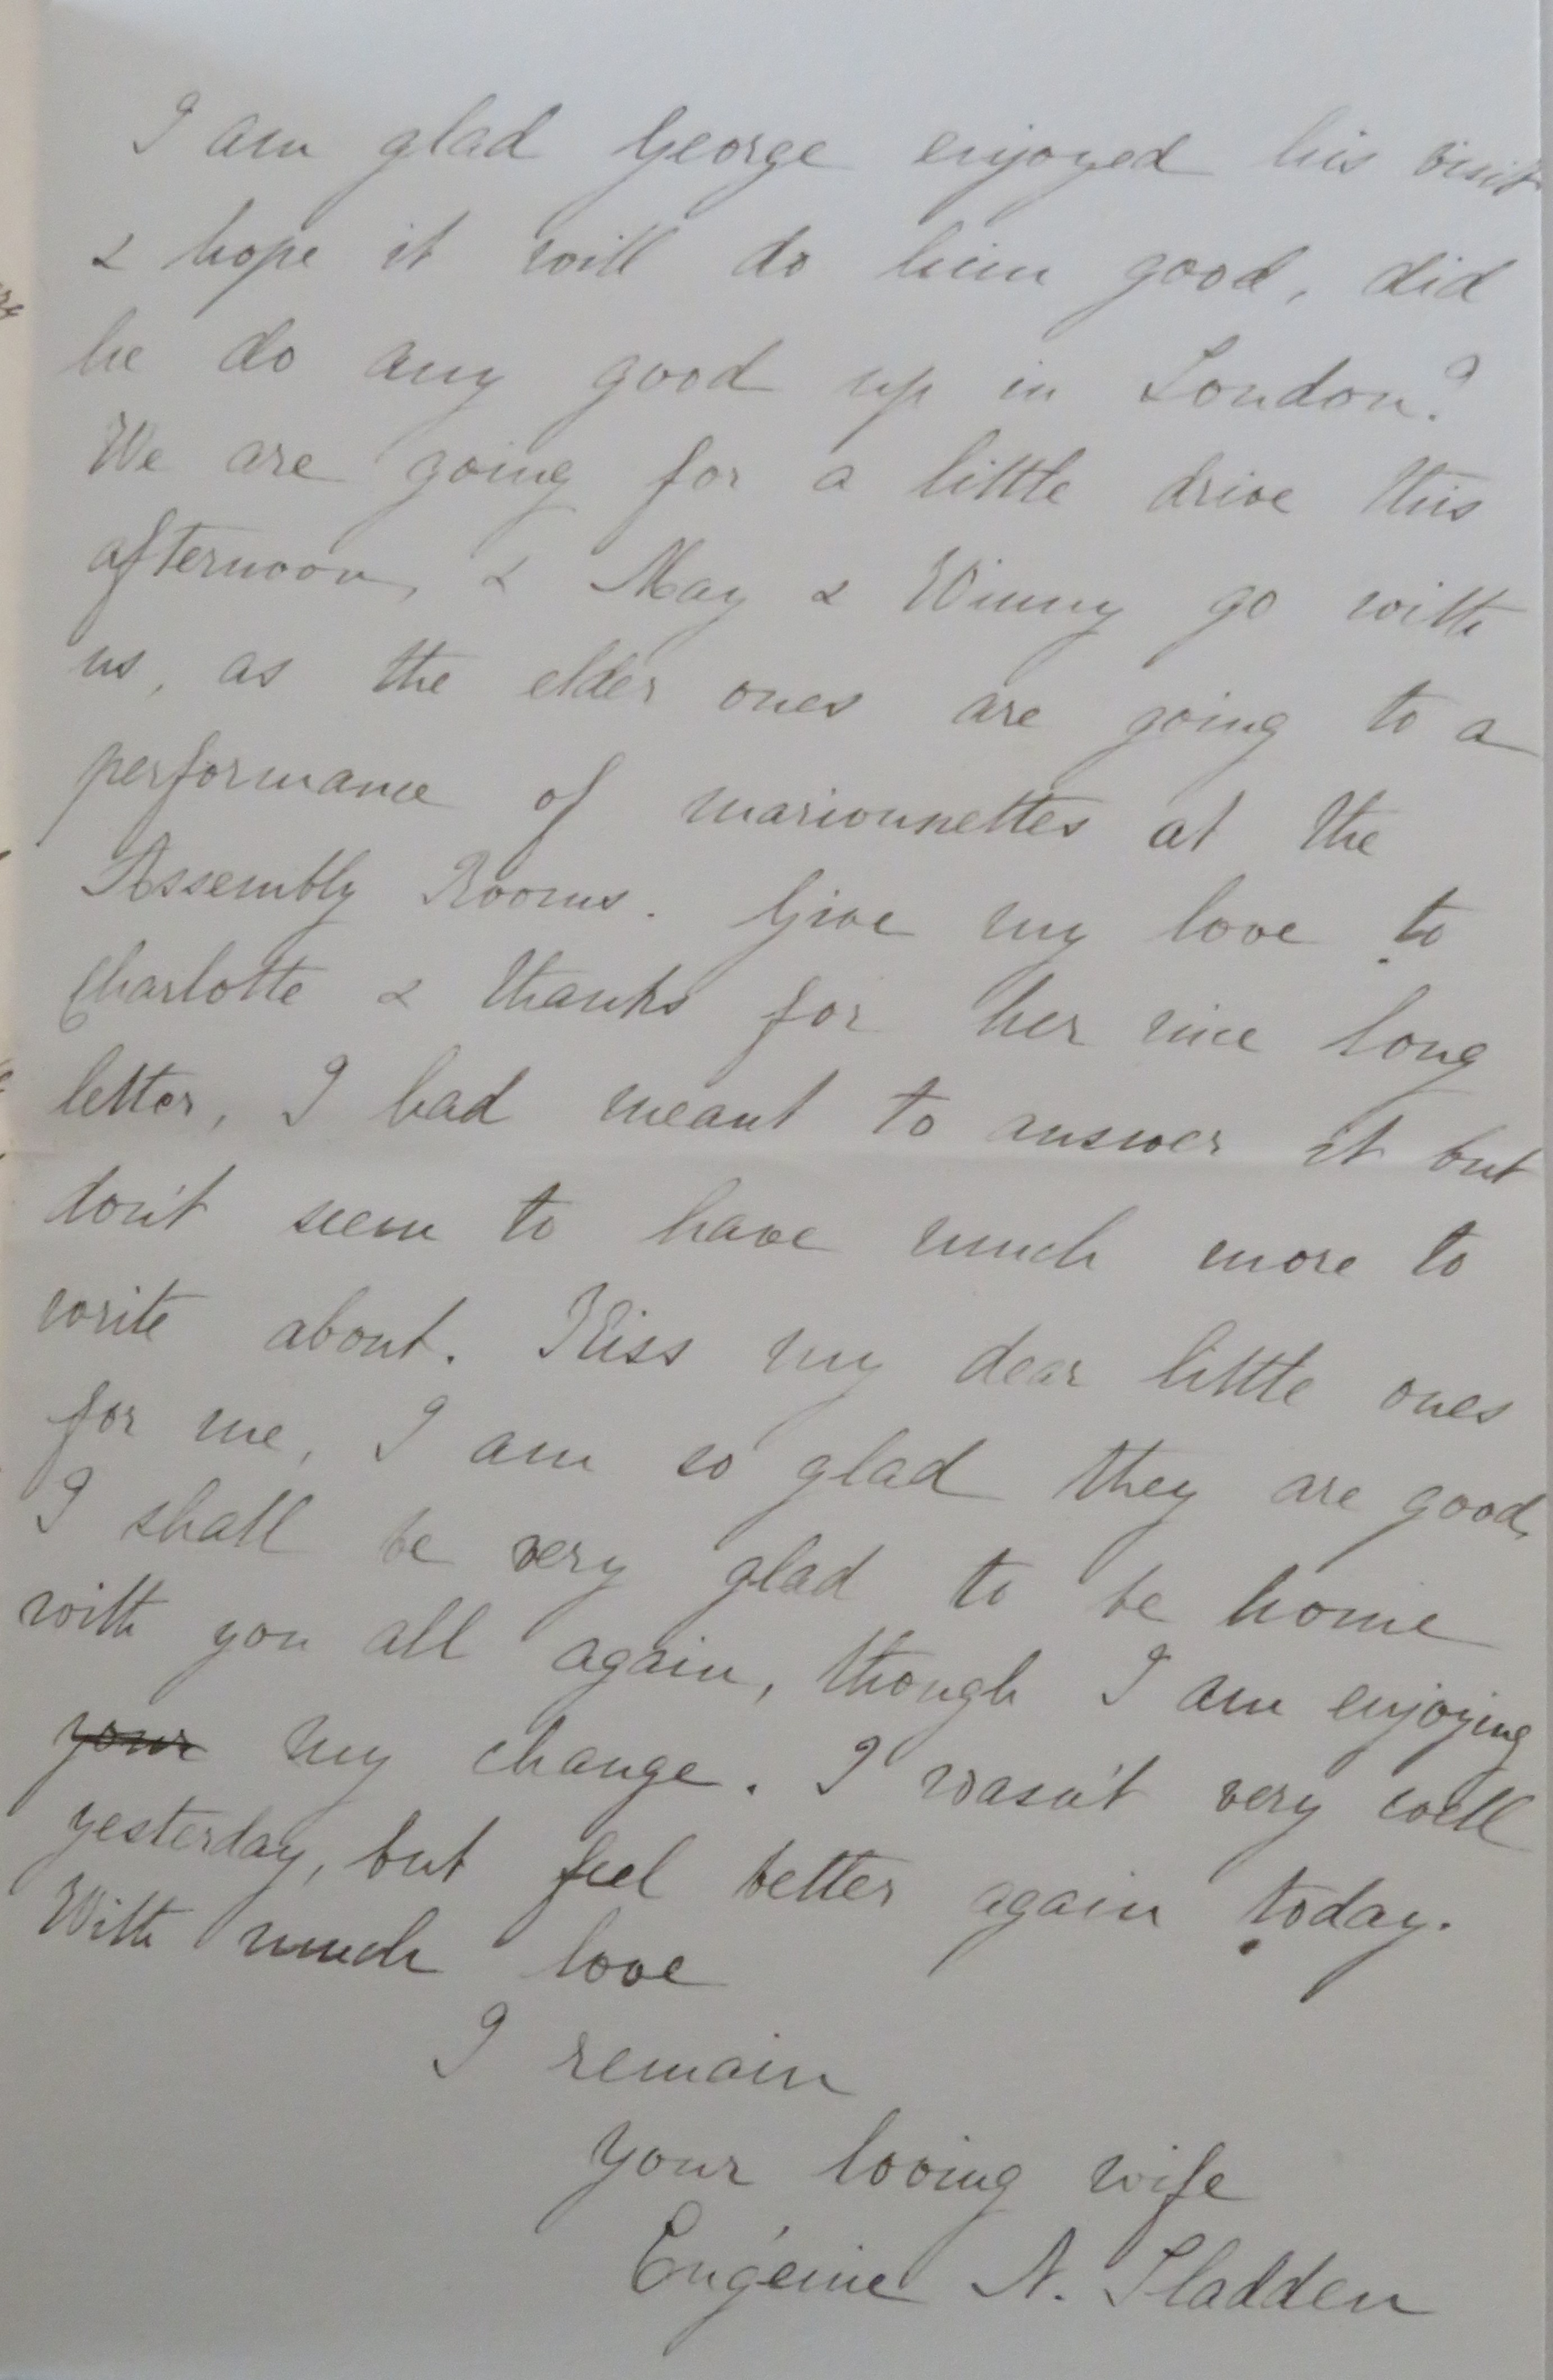 I am glad George enjoyed his visit
& hope it will do him good, did
he do any good up in London?
We are going for a little drive this
afternoon, & May & Winny go with
us, as the elder ones are going to a
performance of marionnettes at the
Assembly Rooms. Give my love to
Charlotte & thanks for her nice long
letter, I had meant to answer it but
don't seem to have much more to
write about. Kiss my dear little ones
for me, I am so glad they are good,
I shall be very glad to be home
with you all again, though I am enjoying
your my change. I wasn't very well
yesterday, but feel better again today.
With much love
I remain
your loving wife
Eugénie N. Sladden